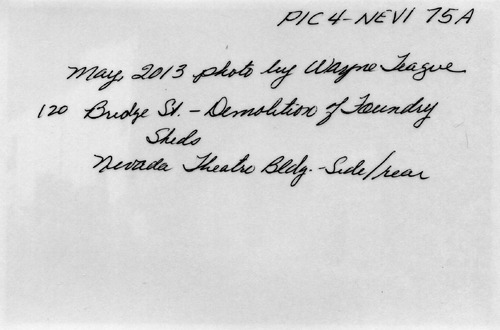 PIC 4-NEVI 75A
May, 2013 photo by Wayne Teague
120 Bridge St. - Demolition of Foundry
Sheds
Nevada Theatre Bldg. - Side/rear